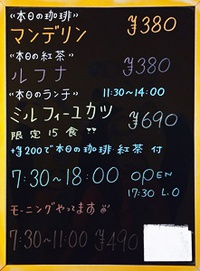 《本日の珈琲》
マンデリン ¥380
《本日の紅茶》
ルフナ ¥380
《本日のランチ》 11:30~14:00
ミルフィーユカツ ¥690
限定15食
+¥200で本日の珈琲・紅茶 付
7:30~18:00 OPEN
17:30 L.O
モーニングやってます
7:30~11:00 ¥490